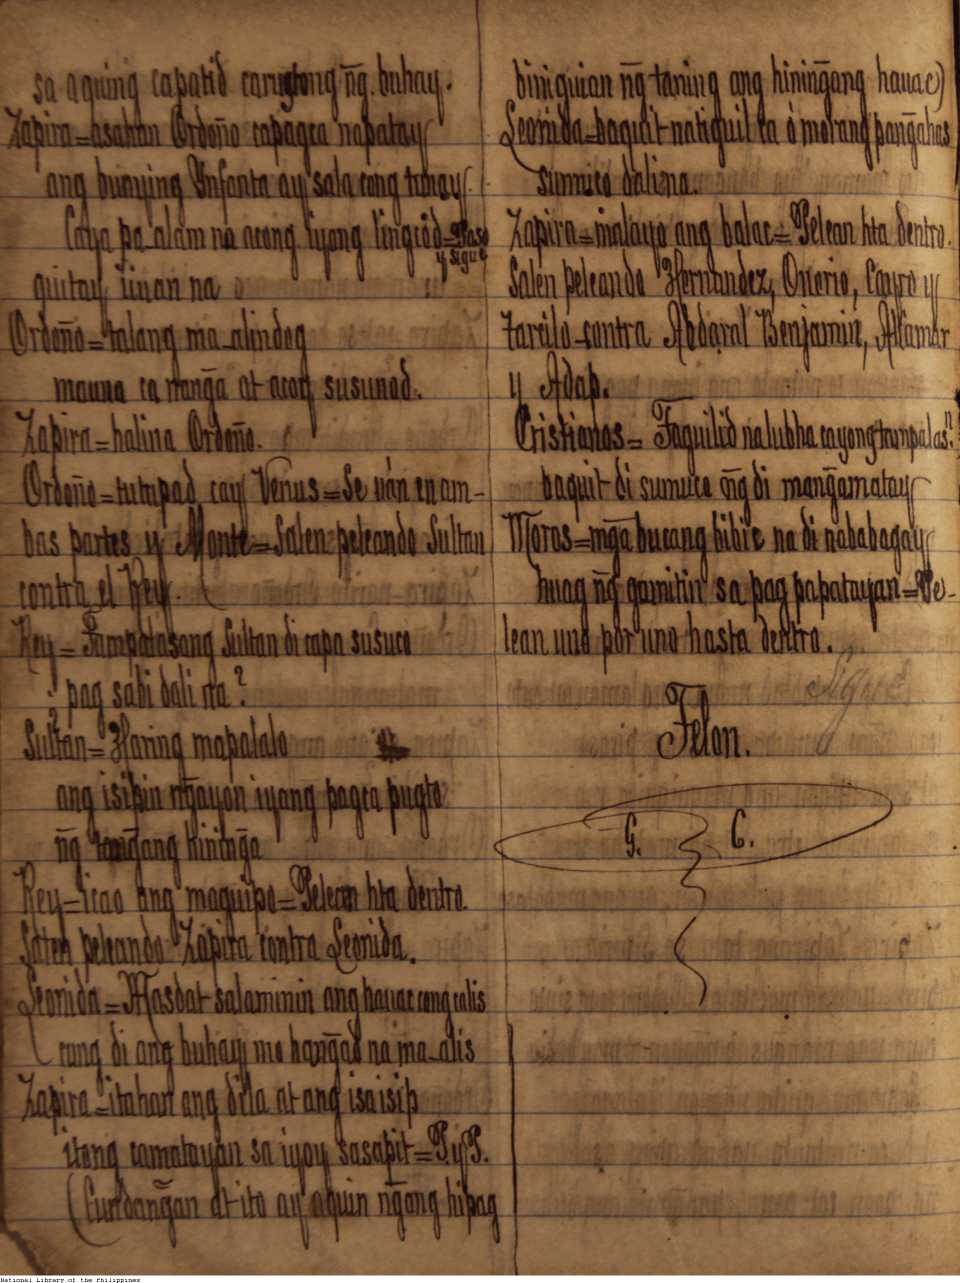 sa aquing capatid carugtong ñg. buhay.
Zapira=asahan Ordoño capagca napatay
ang bunying Ynfanta ay sala cong tunay
Caya pa-alam na acong iyong lingcod=Paso
y sigue
quitay iinan na
Ordoño=talang ma-alindog
mauna ca manḡa at acoy susunod.
Zapira=halina Ordoño.
Ordoño=tutupad cay Venus=Se ván en am-
bas partes y Monte=Salen peleando Sultan
contra el Rey.
Rey= Tampalasang Sultan di capa susuco
¿pag sabi dali na?
Sultan=Haring mapalalo
ang isipin ñgayon iyang pagca pugto
ñg tanḡang hininḡa
Rey=icao ang maguipo=Pelean hta dentro.
Salen peleando Zapira contra Leonida.
Leonida=Masdat salaminin ang hauac cong calis
cung di ang buhay mo hanḡad na ma-alis
Zapira=itahan ang dila at ang isaisip
itong camatayan sa iyoy sasapit=P.y P.
(Cundanḡan at ito ay aquin nḡang hipag
biniguian ñg taning ang hininḡang hauac)
Leonida=baquit natiguil ca ó morang panḡahas
sumuco dalina.
Zapira=malayo ang balac=Pelean hta dentro.
Salen peleando Hernandez, Onerio, Cayro y
Tarcilo contra Abdaral Benjamin, Alcamar
y Adap.
Cristianos= Taguilid nalubha cayong tampalasn?
baquit di sumuco ñg di manḡamatay
Moros=mḡa bucang bibic na di nababagay
huag ñg gamitin sa pag papatayan=Pe-
lean uno por uno hasta dentro.
Sigue
Telon.
G. C.
National Library of the Philippines